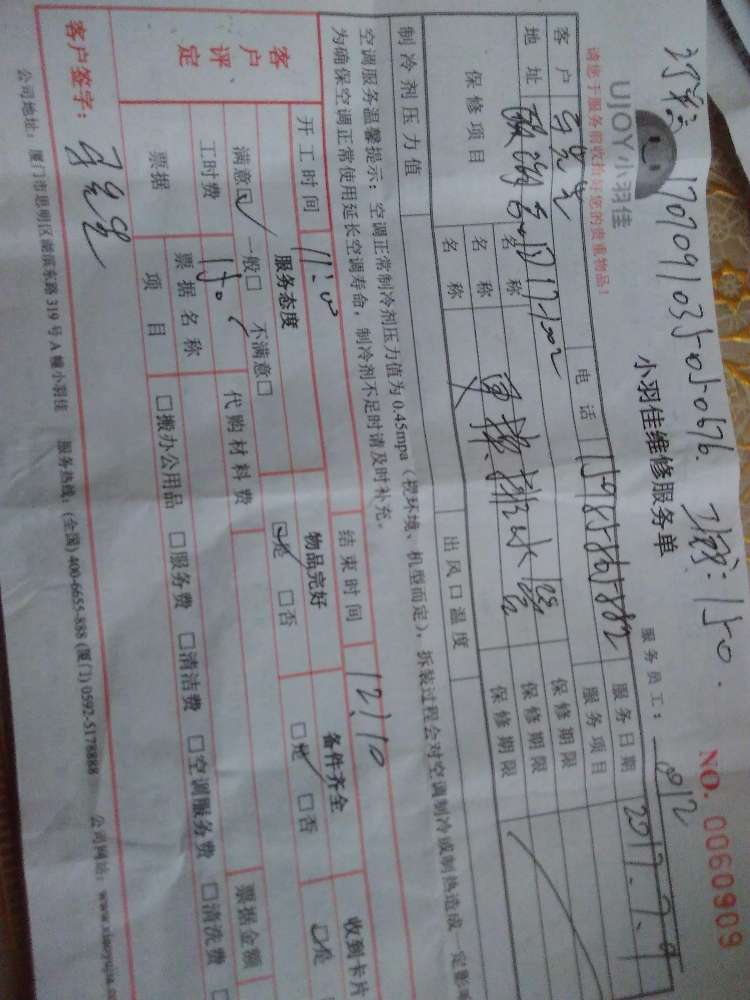 170709103505050676.
150.
UJOY小羽佳
小羽佳维修服务单
NO. 0060909
请您于服务前收拾好您的贵重物品!
服务员工: 012
客户
电话
服务日期 2017.7.9
地址
服务项目
保修项目 名称 保修期限
名称 更换排水 保修期限
名称 保修期限
制冷剂压力值 出风口温度
空调服务温馨提示: 空调正常制冷剂压力值为 0.45mpa (视环境、机型而定), 拆装过程会对空调制冷或制热造成一定影
为确保空调正常使用延长空调寿命, 制冷剂不足时请及时补充。
开工时间 11:00 结束时间 12:10
客户评定 服务态度 物品完好 备件齐全 收到卡片
满意☑ 一般□ 不满意□ ☑是 □否 ☑是 □否 ☑是
工时费 150 代购材料费
票据 票据名称 票据金额
项目 □搬办公用品 □服务费 □清洁费 □空调服务费 □清洗费
客户签字:
公司地址: 厦门市思明区湖滨东路 319 号 A 幢小羽佳 服务热线: (全国) 400-6655-888 (厦门) 0592-5178888 公司网站: www.xiaoyujia.co